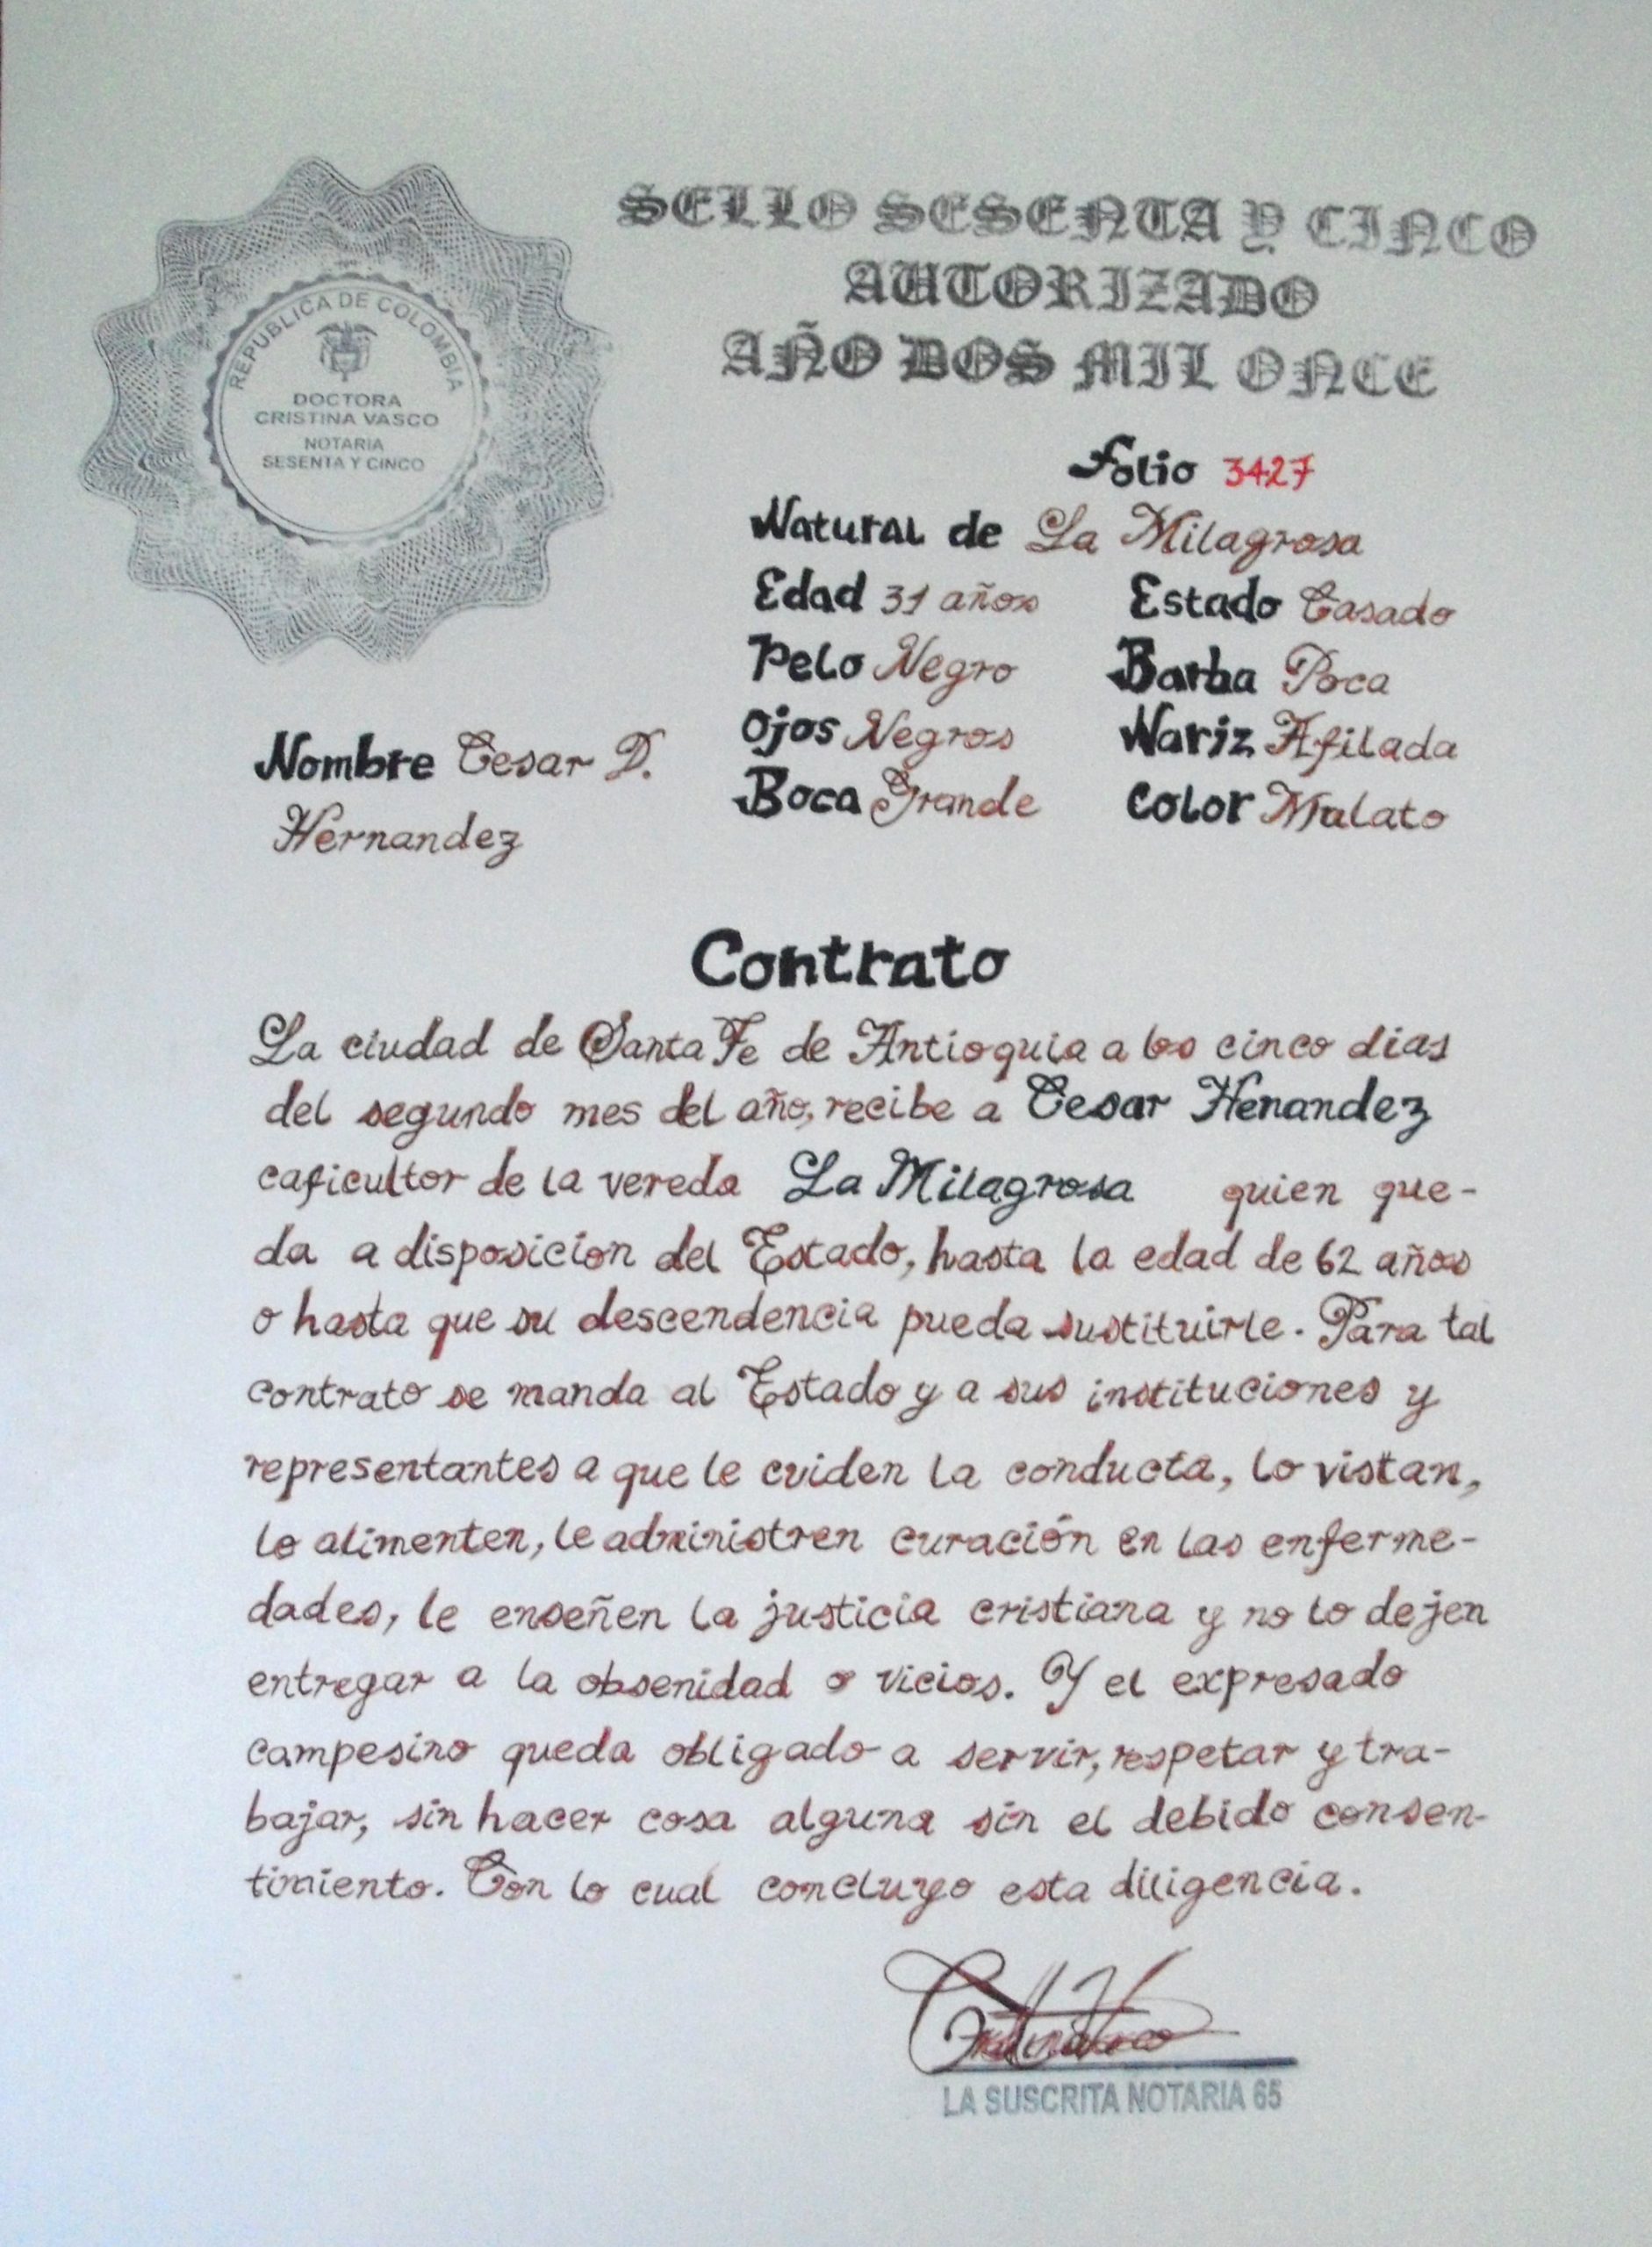 SELLO SESENTA Y CINCO
AUTORIZADO
AÑO DOS MIL ONCE
REPUBLICA DE COLOMBIA
DOCTORA
CRISTINA VASCO
NOTARIA
SESENTA Y CINCO
Folio 3427
Natural de La Milagrosa
Edad 31 años Estado Casado
Pelo Negro Barba Poca
Ojos Negros Nariz Afilada
Boca Grande Color Mulato
Nombre Cesar D.
Hernandez
Contrato
La ciudad de Santa Fe de Antioquia a los cinco dias
del segundo mes del año, recibe a Cesar Henandez
caficultor de la vereda La Milagrosa quien que-
da a disposicion del Estado, hasta la edad de 62 años
o hasta que su descendencia pueda sustituirle. Para tal
contrato se manda al Estado y a sus instituciones y
representantes a que le cuiden la conducta, lo vistan,
lo alimenten, le administren curación en las enferme-
dades, le enseñen la justicia cristiana y no lo dejen
entregar a la obsenidad o vicios. Y el expresado
campesino queda obligado a servir, respetar y tra-
bajar, sin hacer cosa alguna sin el debido consen-
timiento. Con lo cual concluyo esta diligencia.
LA SUSCRITA NOTARIA 65